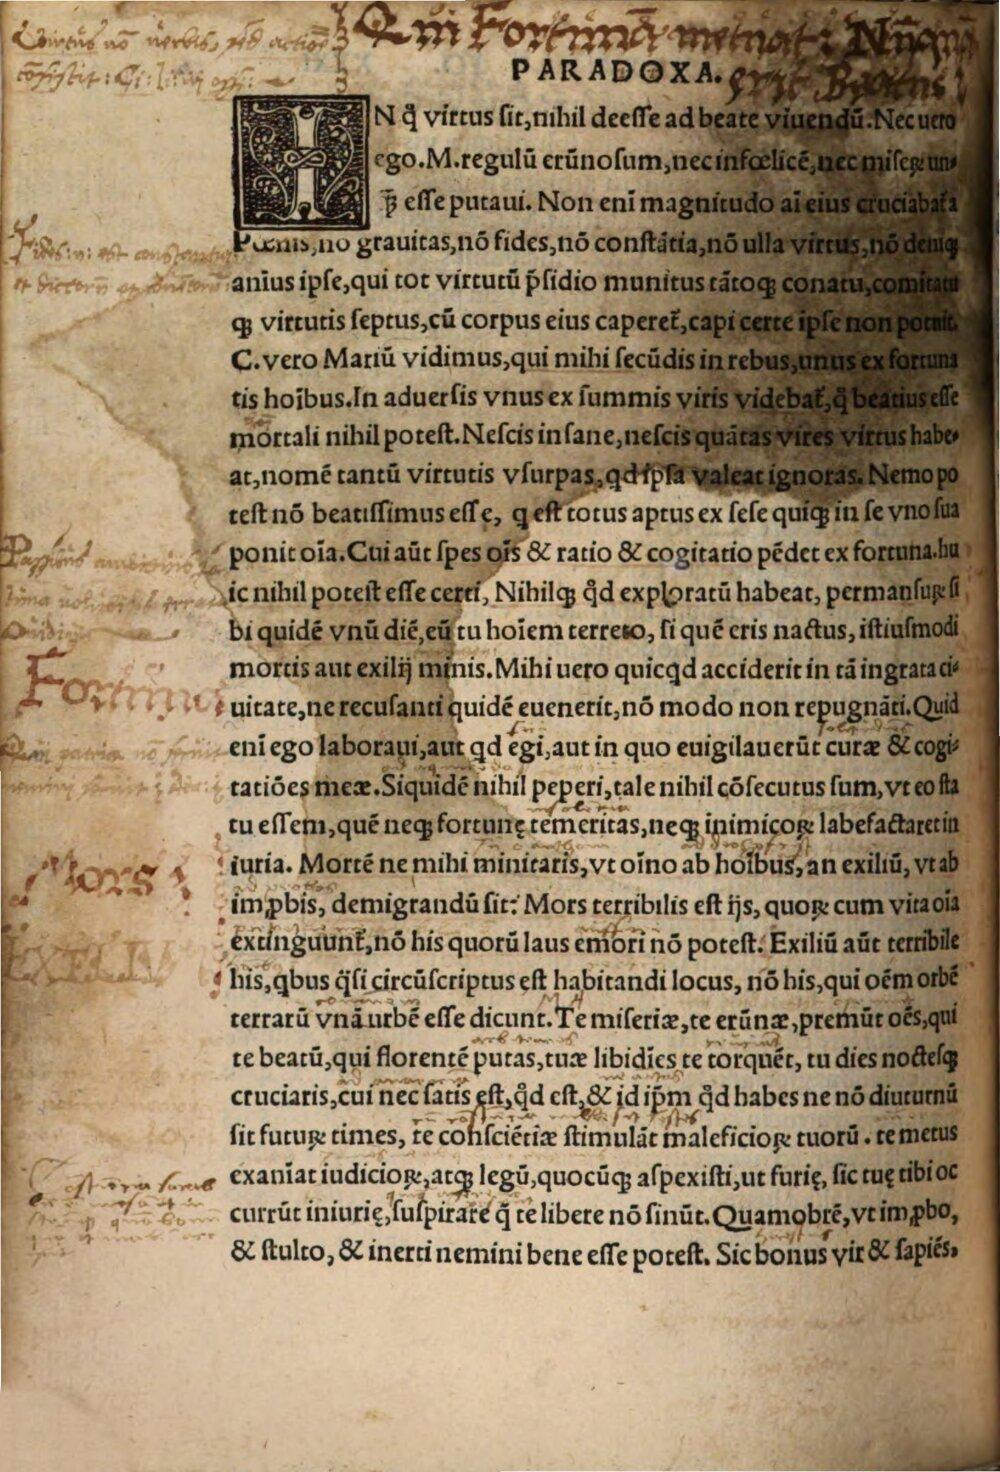 Qui Fortunā metuat: Nūquā
erit Beatus
PARADOXA.
IN q̄ virtus sit, nihil deesse ad beate viuendū. Nec uero
ego. M. regulū erūnosum, nec infœlicē, nec miseꝝ un⸗
ꝙ̄ esse putaui. Non eni magnitudo ai eius cruciabat̄ a
Pœnis, nō grauitas, nō fides, nō constātia, nō ulla virtus, nō deniqꝫ
anius ipse, qui tot virtutū p̄sidio munitus tātoqꝫ conatu, comitatu
qꝫ virtutis septus, cū corpus eius caperet̄, capi certe ipse non potuit.
C. vero Mariū vidimus, qui mihi secūdis in rebus, unus ex fortuna
tis hoībus. In aduersis vnus ex summis viris videbat̄, q̄ beatius esse
mortali nihil potest. Nescis insane, nescis quātas vires virtus habe⸗
at, nomē tantū virtutis vsurpas, qd ipsa valeat ignoras. Nemo po
test nō beatissimus esse, q est totus aptus ex sese quiqꝫ in se vno sua
ponit oīa. Cui aūt spes oīs & ratio & cogitatio pēdet ex fortuna. hu
ic nihil potest esse certi, Nihilqꝫ q̄d exploratū habeat, permansuꝝ si
bi quidē vnū diē, eū tu hoīem terreto, si quē eris nactus, istiusmodi
mortis aut exilij minis. Mihi uero quicqd acciderit in tā ingrata ci⸗
uitate, ne recusanti quidē euenerit, nō modo non repugnāti. Quid
enī ego laboraui, aut qd egi, aut in quo euigilauerūt curæ & cogi⸗
tatiōes meæ. Siquidē nihil peperi, tale nihil cōsecutus sum, vt eo sta
tu essem, quē neqꝫ fortunę temeritas, neqꝫ inimicoꝝ labefactaret in
iuria. Mortē ne mihi minitaris, vt oīno ab hoībus, an exiliū, vt ab
imꝓbis, demigrandū sit: Mors terribilis est ijs, quoꝝ cum vita oīa
extinguunt̄, nō his quorū laus emori nō potest. Exiliū aūt terribile
his, qbus q̄si circūscriptus est habitandi locus, nō his, qui oēm orbē
terrarū vnā urbē esse dicunt. Te miseriæ, te erūnæ, premūt oēs, qui
te beatū, qui florentē putas, tuæ libidīes te torquēt, tu dies noctesqꝫ
cruciaris, cui nec satis est, q̄d est, & id ip̄m q̄d habes ne nō diuturnū
sit futuꝝ times, te consciētiæ stimulāt maleficioꝝ tuorū. te metus
exanīat iudicioꝝ, atqꝫ legū, quocūqꝫ aspexisti, ut furię, sic tuę tibi oc
currūt iniurię, suspirare q̄ te libere nō sinūt. Quamobrē, vt imꝓbo,
& stulto, & inerti nemini bene esse potest. Sic bonus vir & sapiēs,
Virtus nō uerbis, sed actiōe
cōsistit:
Fortuna
Mors
EXILIV